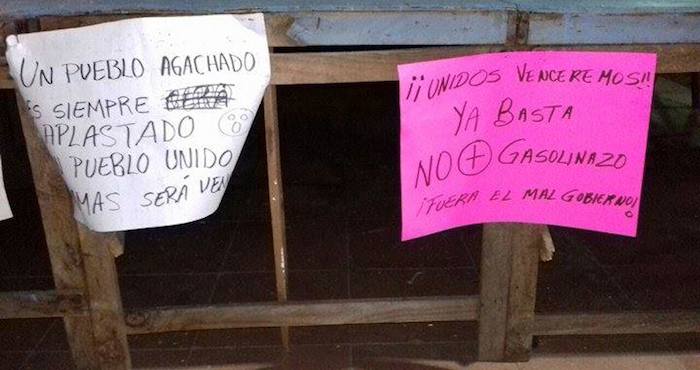 UN PUEBLO AGACHADO
ES SIEMPRE
APLASTADO
PUEBLO UNIDO
MAS SERÁ VEN
¡¡UNIDOS VENCEREMOS!!
YA BASTA
NO + GASOLINAZO
¡FUERA EL MAL GOBIERNO!